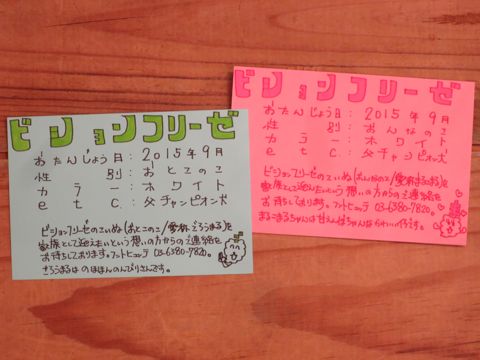 ビションフリーゼ
おたんじょう日：2015年9月
性別：おとこのこ
カラー：ホワイト
etc：父チャンピオン犬
ビションフリーゼのこいぬ(おとこのこ/愛称ころうまる)を
家族として迎えたいという想いの方からのご連絡を
お待ちしております。フントヒュッテ 03-6380-7820。
ころうまるはのほほんのんびりさんです。
ビションフリーゼ
おたんじょう日：2015年9月
性別：おんなのこ
カラー：ホワイト
etc：父チャンピオン犬
ビションフリーゼのこいぬ(おんなのこ/愛称まるこまる)を
家族として迎えたいという想いの方からのご連絡を
お待ちしております。フントヒュッテ 03-6380-7820。